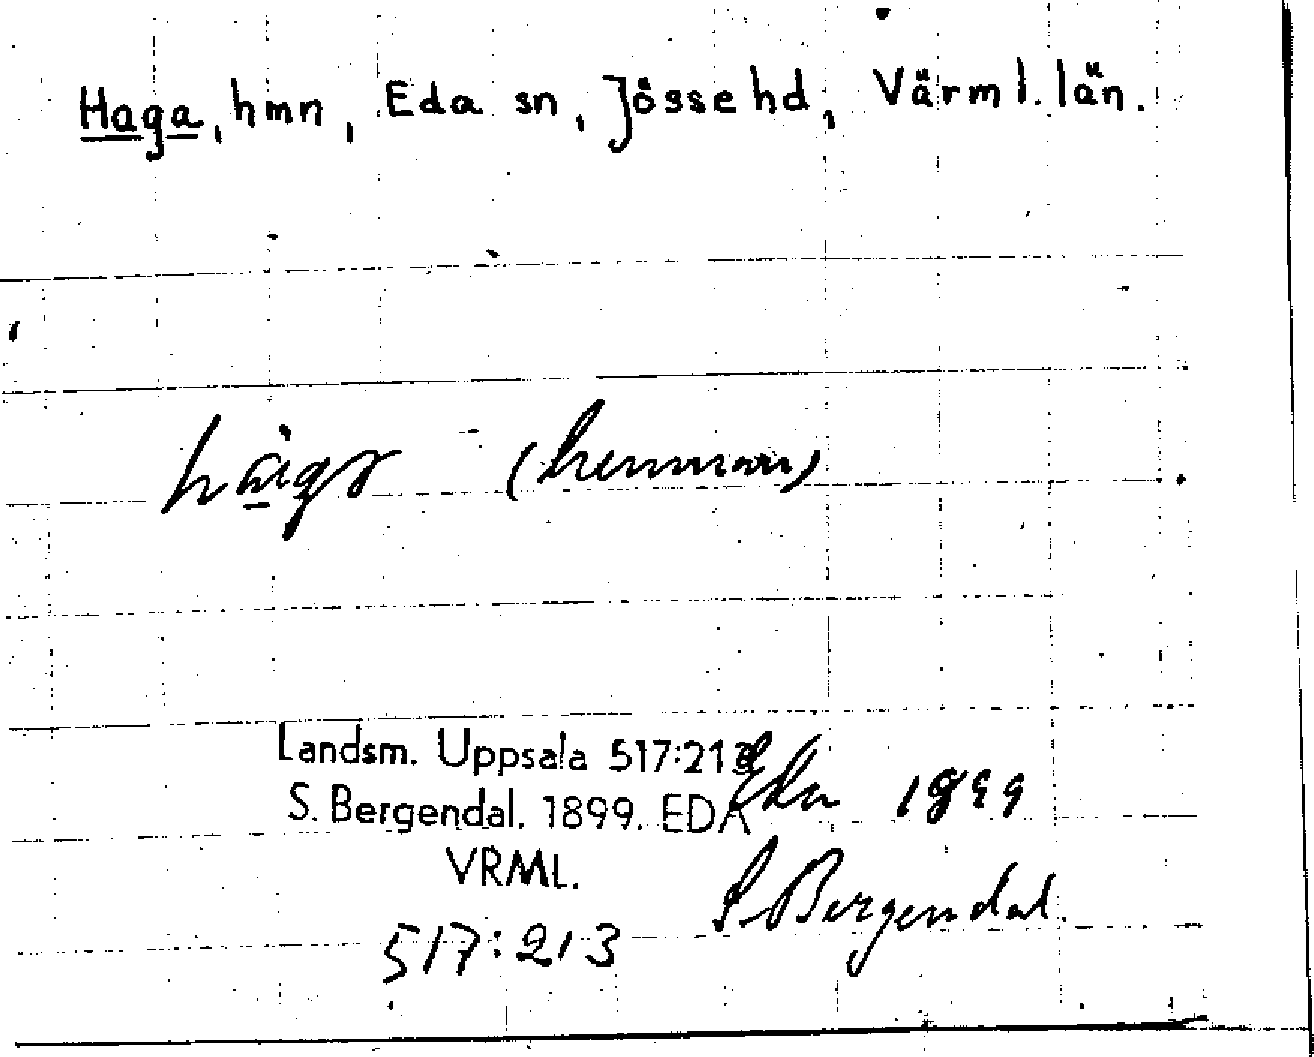 Haga, hmn, Eda sn, Jösse hd, Värml. län.
(hemman)
Landsm. Uppsala 517:213 Eda 1899
S. Bergendal. 1899. EDA
VRML. S. Bergendal.
517:213